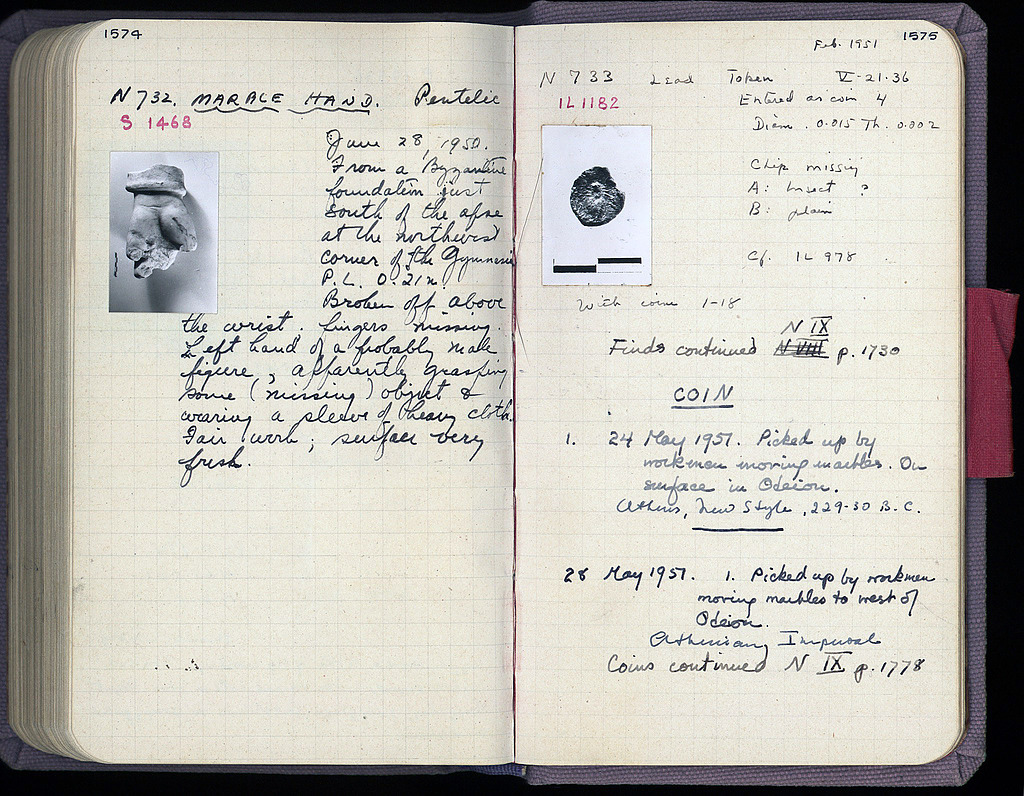 1574
N 732. MARBLE HAND. Pentelic
S 1468
June 28, 1950.
From a Byzantine
foundation just
South of the apse
at the northwest
corner of the Gymnasiu
P.L. 0.21m
Broken off above
the wrist. fingers missing.
Left hand of a probably male
figure, apparently grasping
some (missing) object &
wearing a sleeve of heavy cloth.
Fair work; surface very
fresh.
1575
Feb. 1951
N 733 Lead Token V-21-36
IL 1182
Entered as coin 4
Diam. 0.015 Th. 0.002
Chip missing
A: Insect ?
B: plain
Cf. IL 978
With coins 1-18
N IX
Finds continued N VIII p. 1730
COIN
1. 24 May 1951. Picked up by
workmen moving marbles. On
surface in Odeion.
Athens, New Style, 229-30 B.C.
28 May 1951. 1. Picked up by workmen
moving marbles to west of
Odeion.
Imperial
Coins continued N IX p. 1778